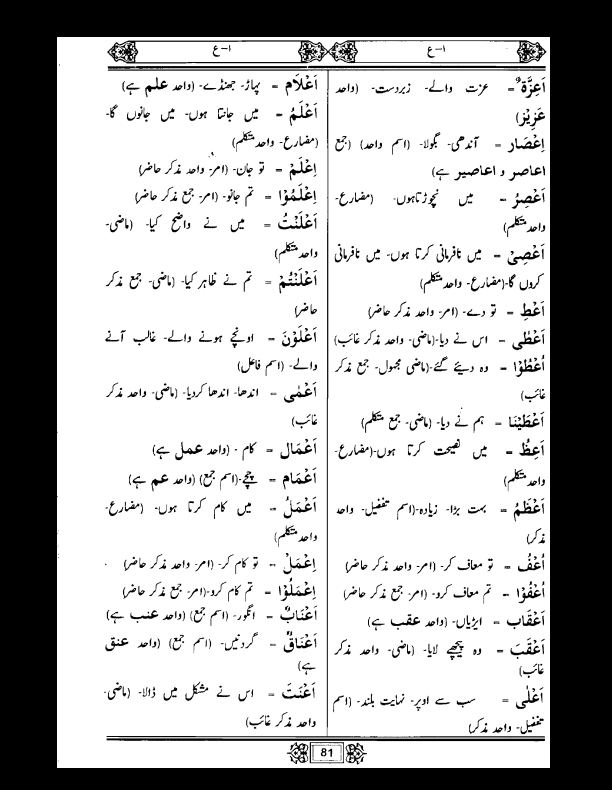 ا-ع
ا-ع
اَعِزَّةٌ = عزت والے- زبردست- (واحد
عَزِیْز)
اِعْصَار = آندھی- بگولا- (اسم واحد) (جمع
اعاصر و اعاصیر ہے)
اَعْصِرُ = میں نچوڑتاہوں- (مضارع-
واحد متکلم)
اَعْصِیْ = میں نافرمانی کرتا ہوں- میں نافرمانی
کروں گا-(مضارع- واحد متکلم)
اَعْطِ = تو دے- (امر- واحد مذکر حاضر)
اَعْطٰی = اس نے دیا-(ماضی- واحد مذکر غائب)
اُعْطُوْا = وہ دیئے گئے-(ماضی مجہول- جمع مذکر
غائب)
اَعْطَیْنَا = ہم نے دیا- (ماضی- جمع متکلم)
اَعِظُ = میں نصیحت کرتا ہوں-(مضارع-
واحد متکلم)
اَعْظَمُ = بہت بڑا- زیادہ-(اسم تفضیل- واحد
مذکر)
اُعْفُ = تو معاف کر- (امر- واحد مذکر حاضر)
اُعْفُوْا = تم معاف کرو- (امر- جمع مذکر حاضر)
اَعْقَاب = ایڑیاں- (واحد عقب ہے)
اَعْقَبَ = وہ پیچھے لایا- (ماضی- واحد مذکر
غائب)
اَعْلٰی = سب سے اوپر- نہایت بلند- (اسم
تفضیل- واحد مذکر)
اَعْلَام = پہاڑ- جھنڈے- (واحد علم ہے)
اَعْلَمُ = میں جانتا ہوں- میں جانوں گا-
(مضارع- واحد متکلم)
اِعْلَمْ = تو جان- (امر- واحد مذکر حاضر)
اِعْلَمُوْا = تم جانو- (امر- جمع مذکر حاضر)
اَعْلَنْتُ = میں نے واضح کیا- (ماضی-
واحد متکلم)
اَعْلَنْتُمْ = تم نے ظاہر کیا- (ماضی- جمع مذکر
حاضر)
اَعْلَوْنَ = اونچے ہونے والے- غالب آنے
والے- (اسم فاعل)
اَعْمٰی = اندھا- اندھا کردیا- (ماضی- واحد مذکر
غائب)
اَعْمَال = کام - (واحد عمل ہے)
اَعْمَام = چچے-(اسم جمع) (واحد عم ہے)
اَعْمَلُ = میں کام کرتا ہوں- (مضارع-
واحد متکلم)
اِعْمَلْ = تو کام کر- (امر- واحد مذکر حاضر)
اِعْمَلُوْا = تم کام کرو-(امر- جمع مذکر حاضر)
اَعْنَابٌ = انگور- (اسم جمع) (واحد عنب ہے)
اَعْنَاقٌ = گردنیں- (اسم جمع) (واحد عنق
ہے)
اَعْنَتَ = اس نے مشکل میں ڈالا- (ماضی-
واحد مذکر غائب)
81